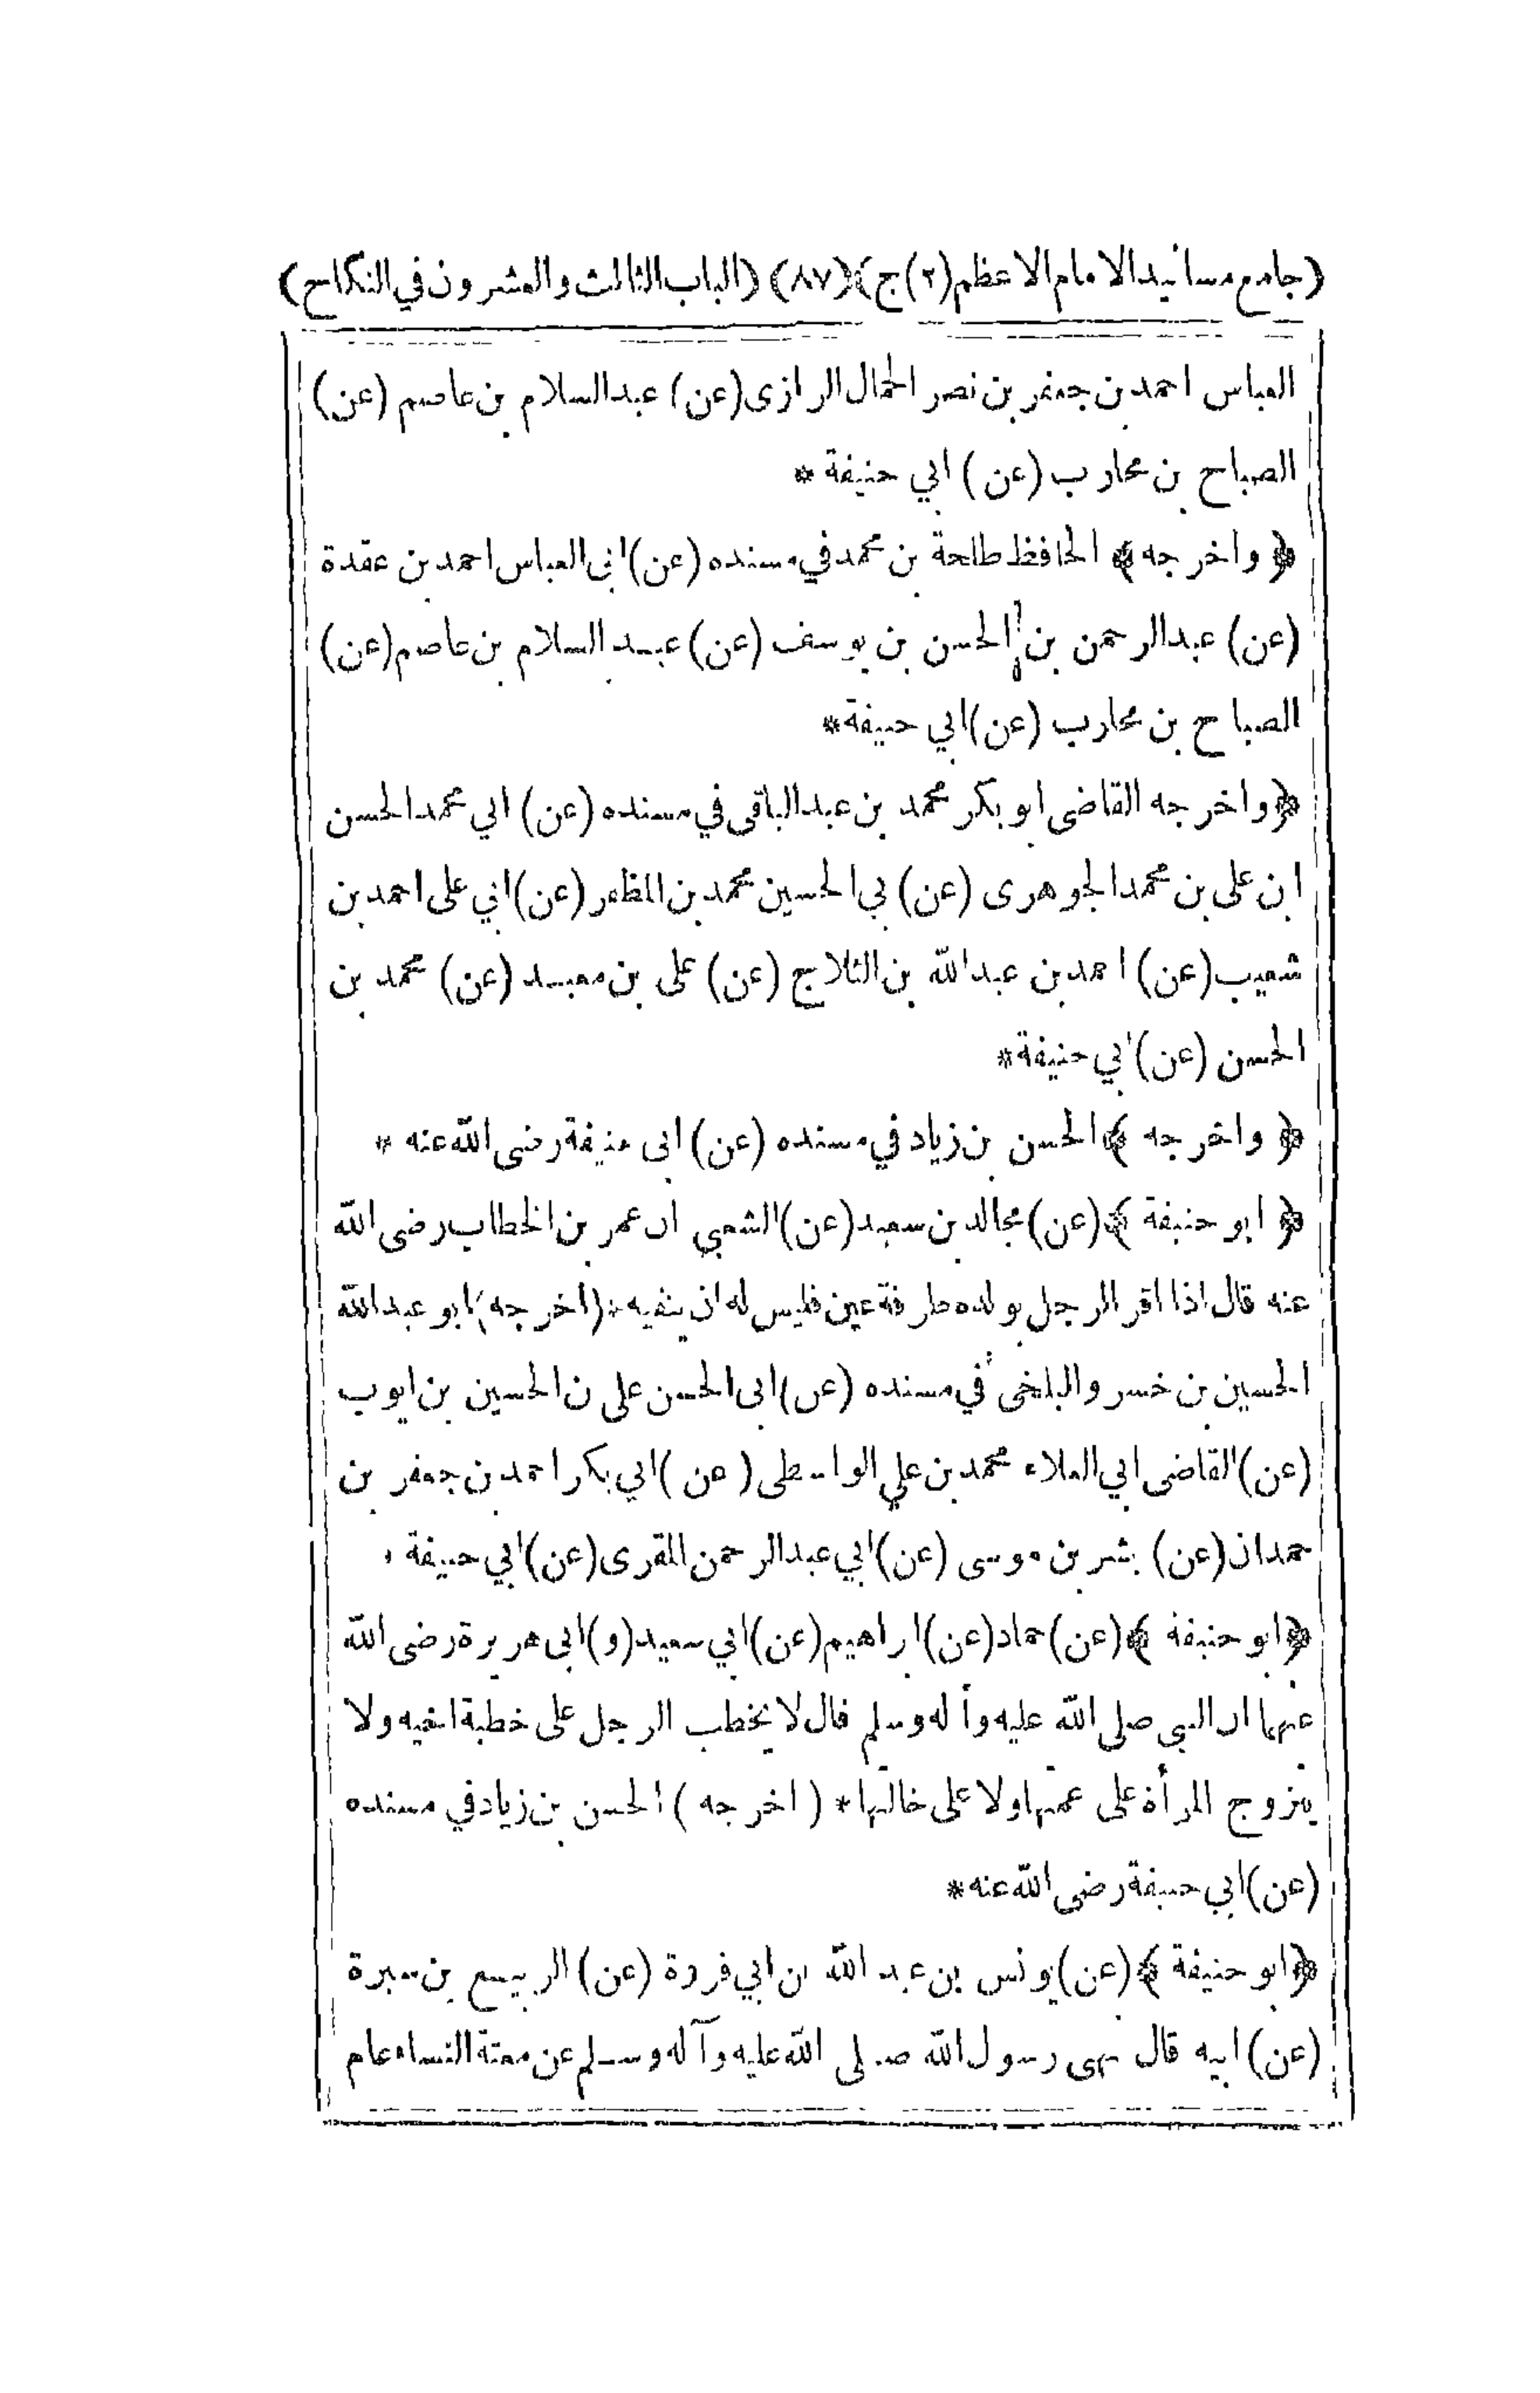 (جامع مسانيد الامام الاعظم (٢) ج) (٨٧) (الباب الثالث والعشرون في النكاح)
العباس احمد بن جعفر بن نصر الجمال الرازى (عن) عبد السلام بن عاصم (عن)
الصباح بن محارب (عن) ابي حنيفة *
﴿ واخرجه ﴾ الحافظ طلحة بن محمد في مسنده (عن) ابى العباس احمد بن عقدة
(عن) عبد الرحمن بن الحسن بن يوسف (عن) عبد السلام بن عاصم (عن)
الصباح بن محارب (عن) ابي حنيفة *
﴿ واخرجه القاضى ابو بكر محمد بن عبد الباقى في مسنده (عن) ابي محمد الحسن
ابن على بن محمد الجوهرى (عن) بي الحسين محمد بن المظفر (عن) ابي على احمد بن
شعيب (عن) احمد بن عبد الله بن الثلاج (عن) على بن معبد (عن) محمد بن
الحسن (عن) ابي حنيفة *
﴿ واخرجه ﴾ الحسن بن زياد في مسنده (عن) ابى حنيفة رضى الله عنه *
﴿ ابو حنيفة ﴾ (عن) مجالد بن سعيد (عن) الشعبي ان عمر بن الخطاب رضى الله
عنه قال اذا اقر الرجل بولده طرفة عين فليس له ان ينفيه * (اخرجه) ابو عبد الله
الحسين بن خسرو البلخى في مسنده (عن) ابى الحسن على بن الحسين بن ايوب
(عن) القاضى ابي العلاء محمد بن علي الواسطى (عن) ابي بكر احمد بن جعفر بن
حمدان (عن) بشر بن موسى (عن) ابي عبد الرحمن المقرى (عن) ابي حنيفة *
﴿ ابو حنيفة ﴾ (عن) حماد (عن) ابراهيم (عن) ابي سعيد (و) ابى هريرة رضى الله
عنهما ان النبي صلى الله عليه وآله وسلم قال لا يخطب الرجل على خطبة اخيه ولا
يتزوج المرأة على عمتها ولا على خالتها * (اخرجه) الحسن بن زياد في مسنده
(عن) ابي حنيفة رضى الله عنه *
﴿ ابو حنيفة ﴾ (عن) يونس بن عبد الله بن ابي فروة (عن) الربيع بن سبرة
(عن) ابيه قال نهى رسول الله صلى الله عليه وآله وسلم عن متعة النساء عام